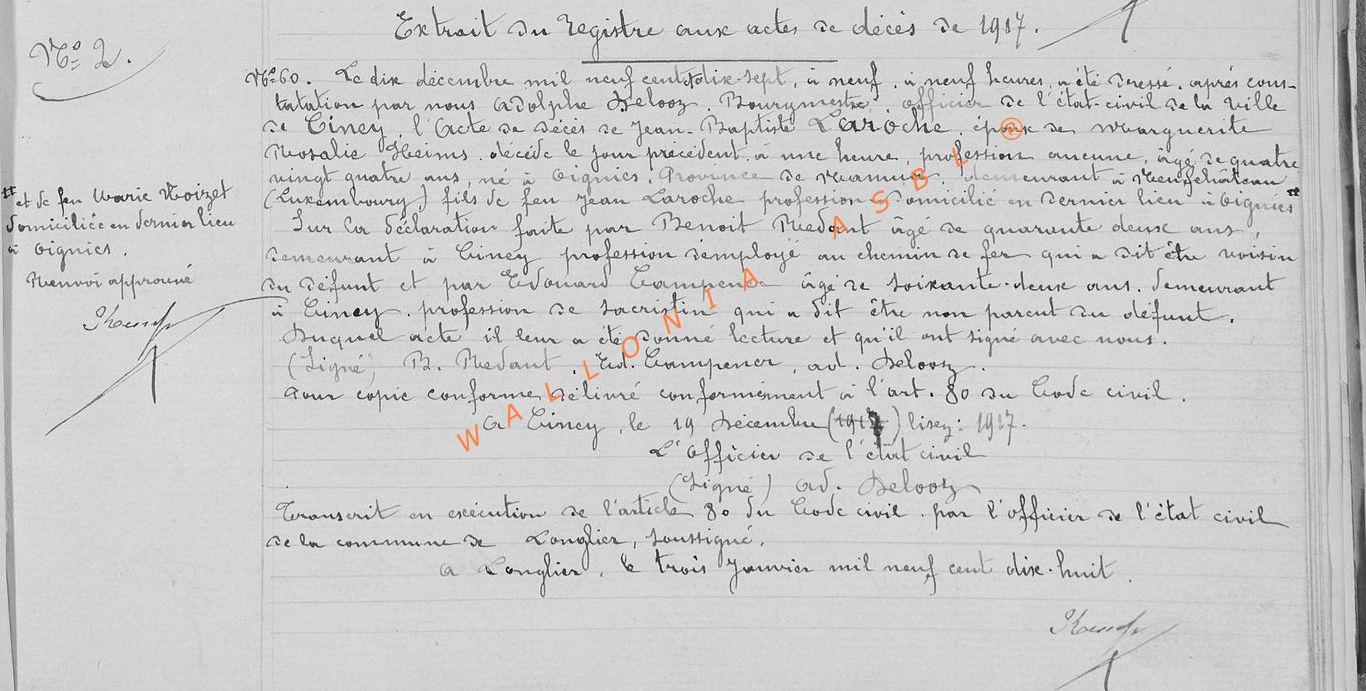 Extrait du Registre aux actes de décès de 1917.
N° 2.
N° 60. Le dix décembre mil neuf cent dix-sept, à neuf, à neuf heures, a été dressé, après cons-
tatation par nous Adolphe Delooz, Bourgmestre, officier de l'état-civil de la Ville
de Ciney, l'Acte de décès de Jean-Baptiste Laroche, époux de Marguerite
Rosalie Heims, décédé le jour précédent, à une heure, profession aucune, âgé de quatre
vingt quatre ans, né à Oignies, Province de Namur, demeurant à Neufchâteau
(Luxembourg) fils de feu Jean Laroche profession domicilié en dernier lieu à Oignies #
# et de feu Marie Noizet
domiciliée en dernier lieu
à Oignies.
Renvoi approuvé
Sur la déclaration faite par Benoit Redant âgé de quarante deux ans,
demeurant à Ciney profession d'employé au chemin de fer qui a dit être voisin
du défunt et par Edouard Campener âgé de soixante-deux ans, demeurant
à Ciney, profession de sacristin qui a dit être non parent du défunt.
Duquel acte il leur a été donné lecture et qu'il ont signé avec nous.
(Signé) B. Redant, Ed. Campener, ad. Delooz.
Pour copie conforme délivré conformément à l'art. 80 du Code civil.
A Ciney, le 19 Décembre (1917) lisez: 1917.
L'Officier de l'état civil
(Signé) ad. Delooz
Transcrit en exécution de l'article 80 du Code civil, par l'officier de l'état civil
de la commune de Longlier, soussigné.
A Longlier, le trois Janvier mil neuf cent dix-huit.
WALLONIA ASBL ®